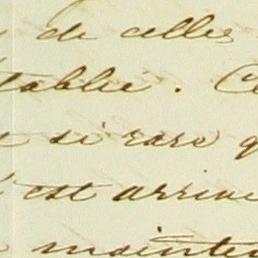 de celles
table.
si rare
est arrive
mainten